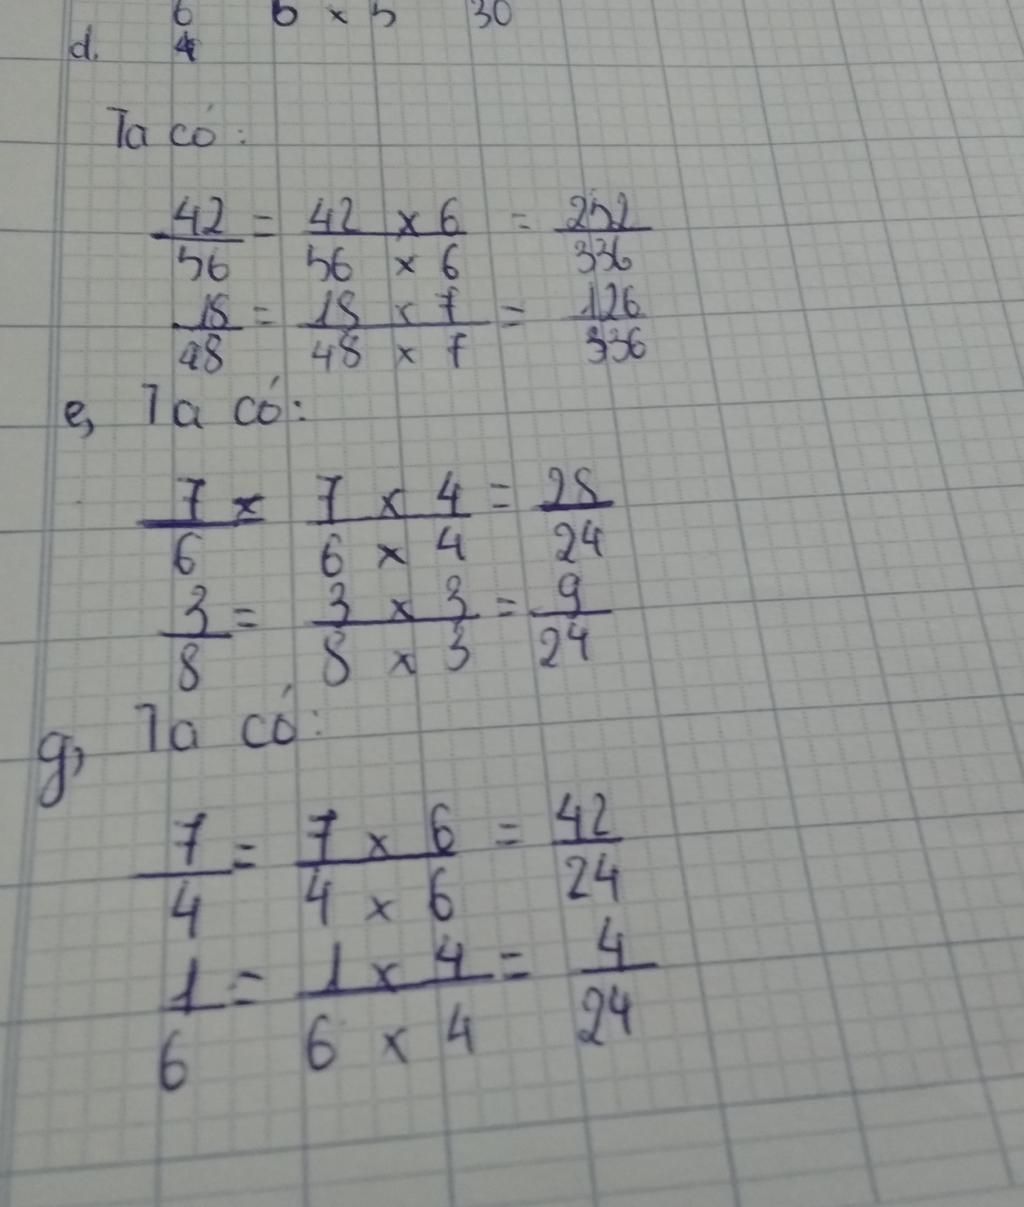 6 6 × 5 30
d. 4
Ta có:
42/56 = 42 × 6 / 56 × 6 = 252/336
18/48 = 18 × 7 / 48 × 7 = 126/336
e, Ta có:
7/6 = 7 × 4 / 6 × 4 = 28/24
3/8 = 3 × 3 / 8 × 3 = 9/24
g, Ta có:
7/4 = 7 × 6 / 4 × 6 = 42/24
1/6 = 1 × 4 / 6 × 4 = 4/24